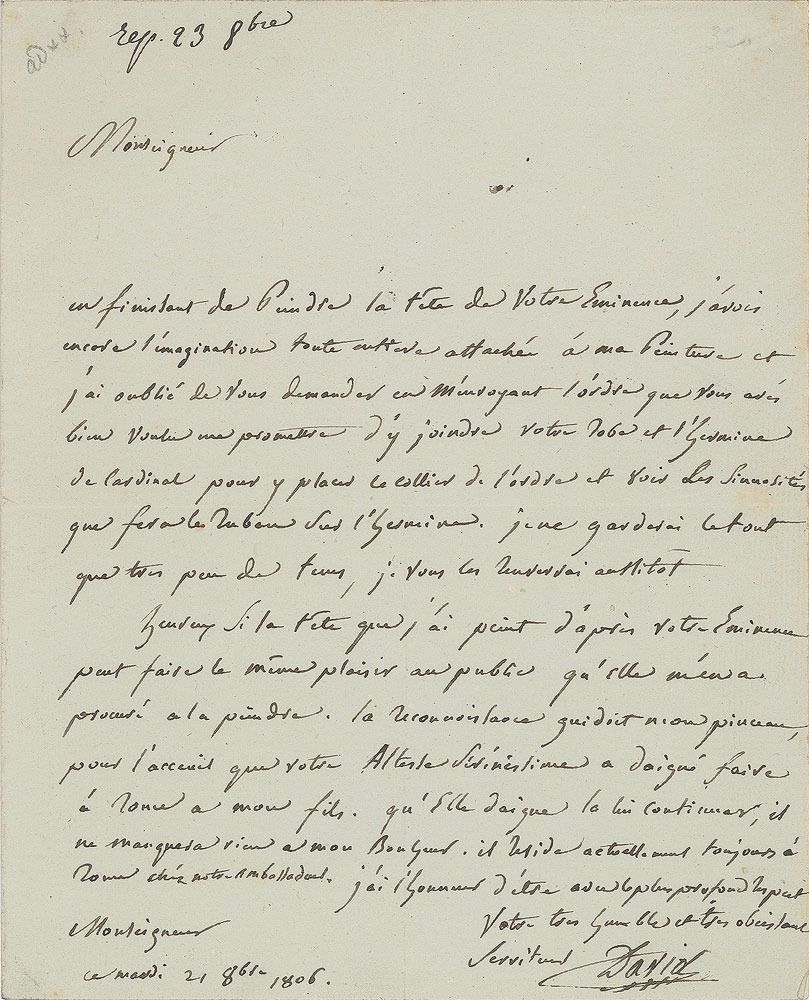 Rep. 23 8bre
Monseigneur
en finissant de Peindre la tête de Votre Eminence, j'avois
encore l'imagination toute entiere attachée à ma Peinture et
j'ai oublié de Vous demander en m'envoyant l'ordre que Vous avés
bien Voulu me promettre d'y joindre votre robe et l'hermine
de Cardinal pour y placer le collier de l'ordre et voir Les Sinuosités
que fera le Ruban Sur l'hermine. je ne garderai le tout
que tres peu de tems, je Vous les renverrai aussitôt
heureux Si la tête que j'ai peint d'après votre Eminence
peut faire le même plaisir au public qu'elle m'en a
procuré a la peindre. la reconnoissance guidoit mon pinceau,
pour l'acceuil que votre Altesse Sérénissime a daigné faire
à Rome a mon fils. qu'Elle daigne la lui continuer, il
ne manquera rien a mon Bonheur. il reside actuellement toujours à
Rome chéz notre Ambassadeur. j'ai l'honneur d'être avec le plus profond respect
Votre tres humble et très obeissant
Monseigneur
Serviteur David
ce mardi 21 8bre 1806.